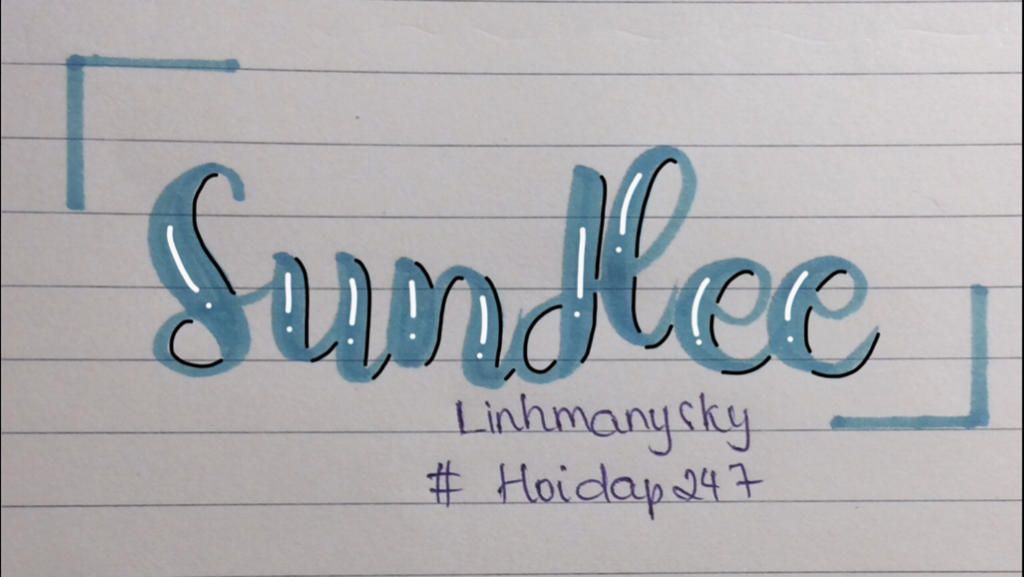 Sundlee
Linhmanysky
# Hoidap247